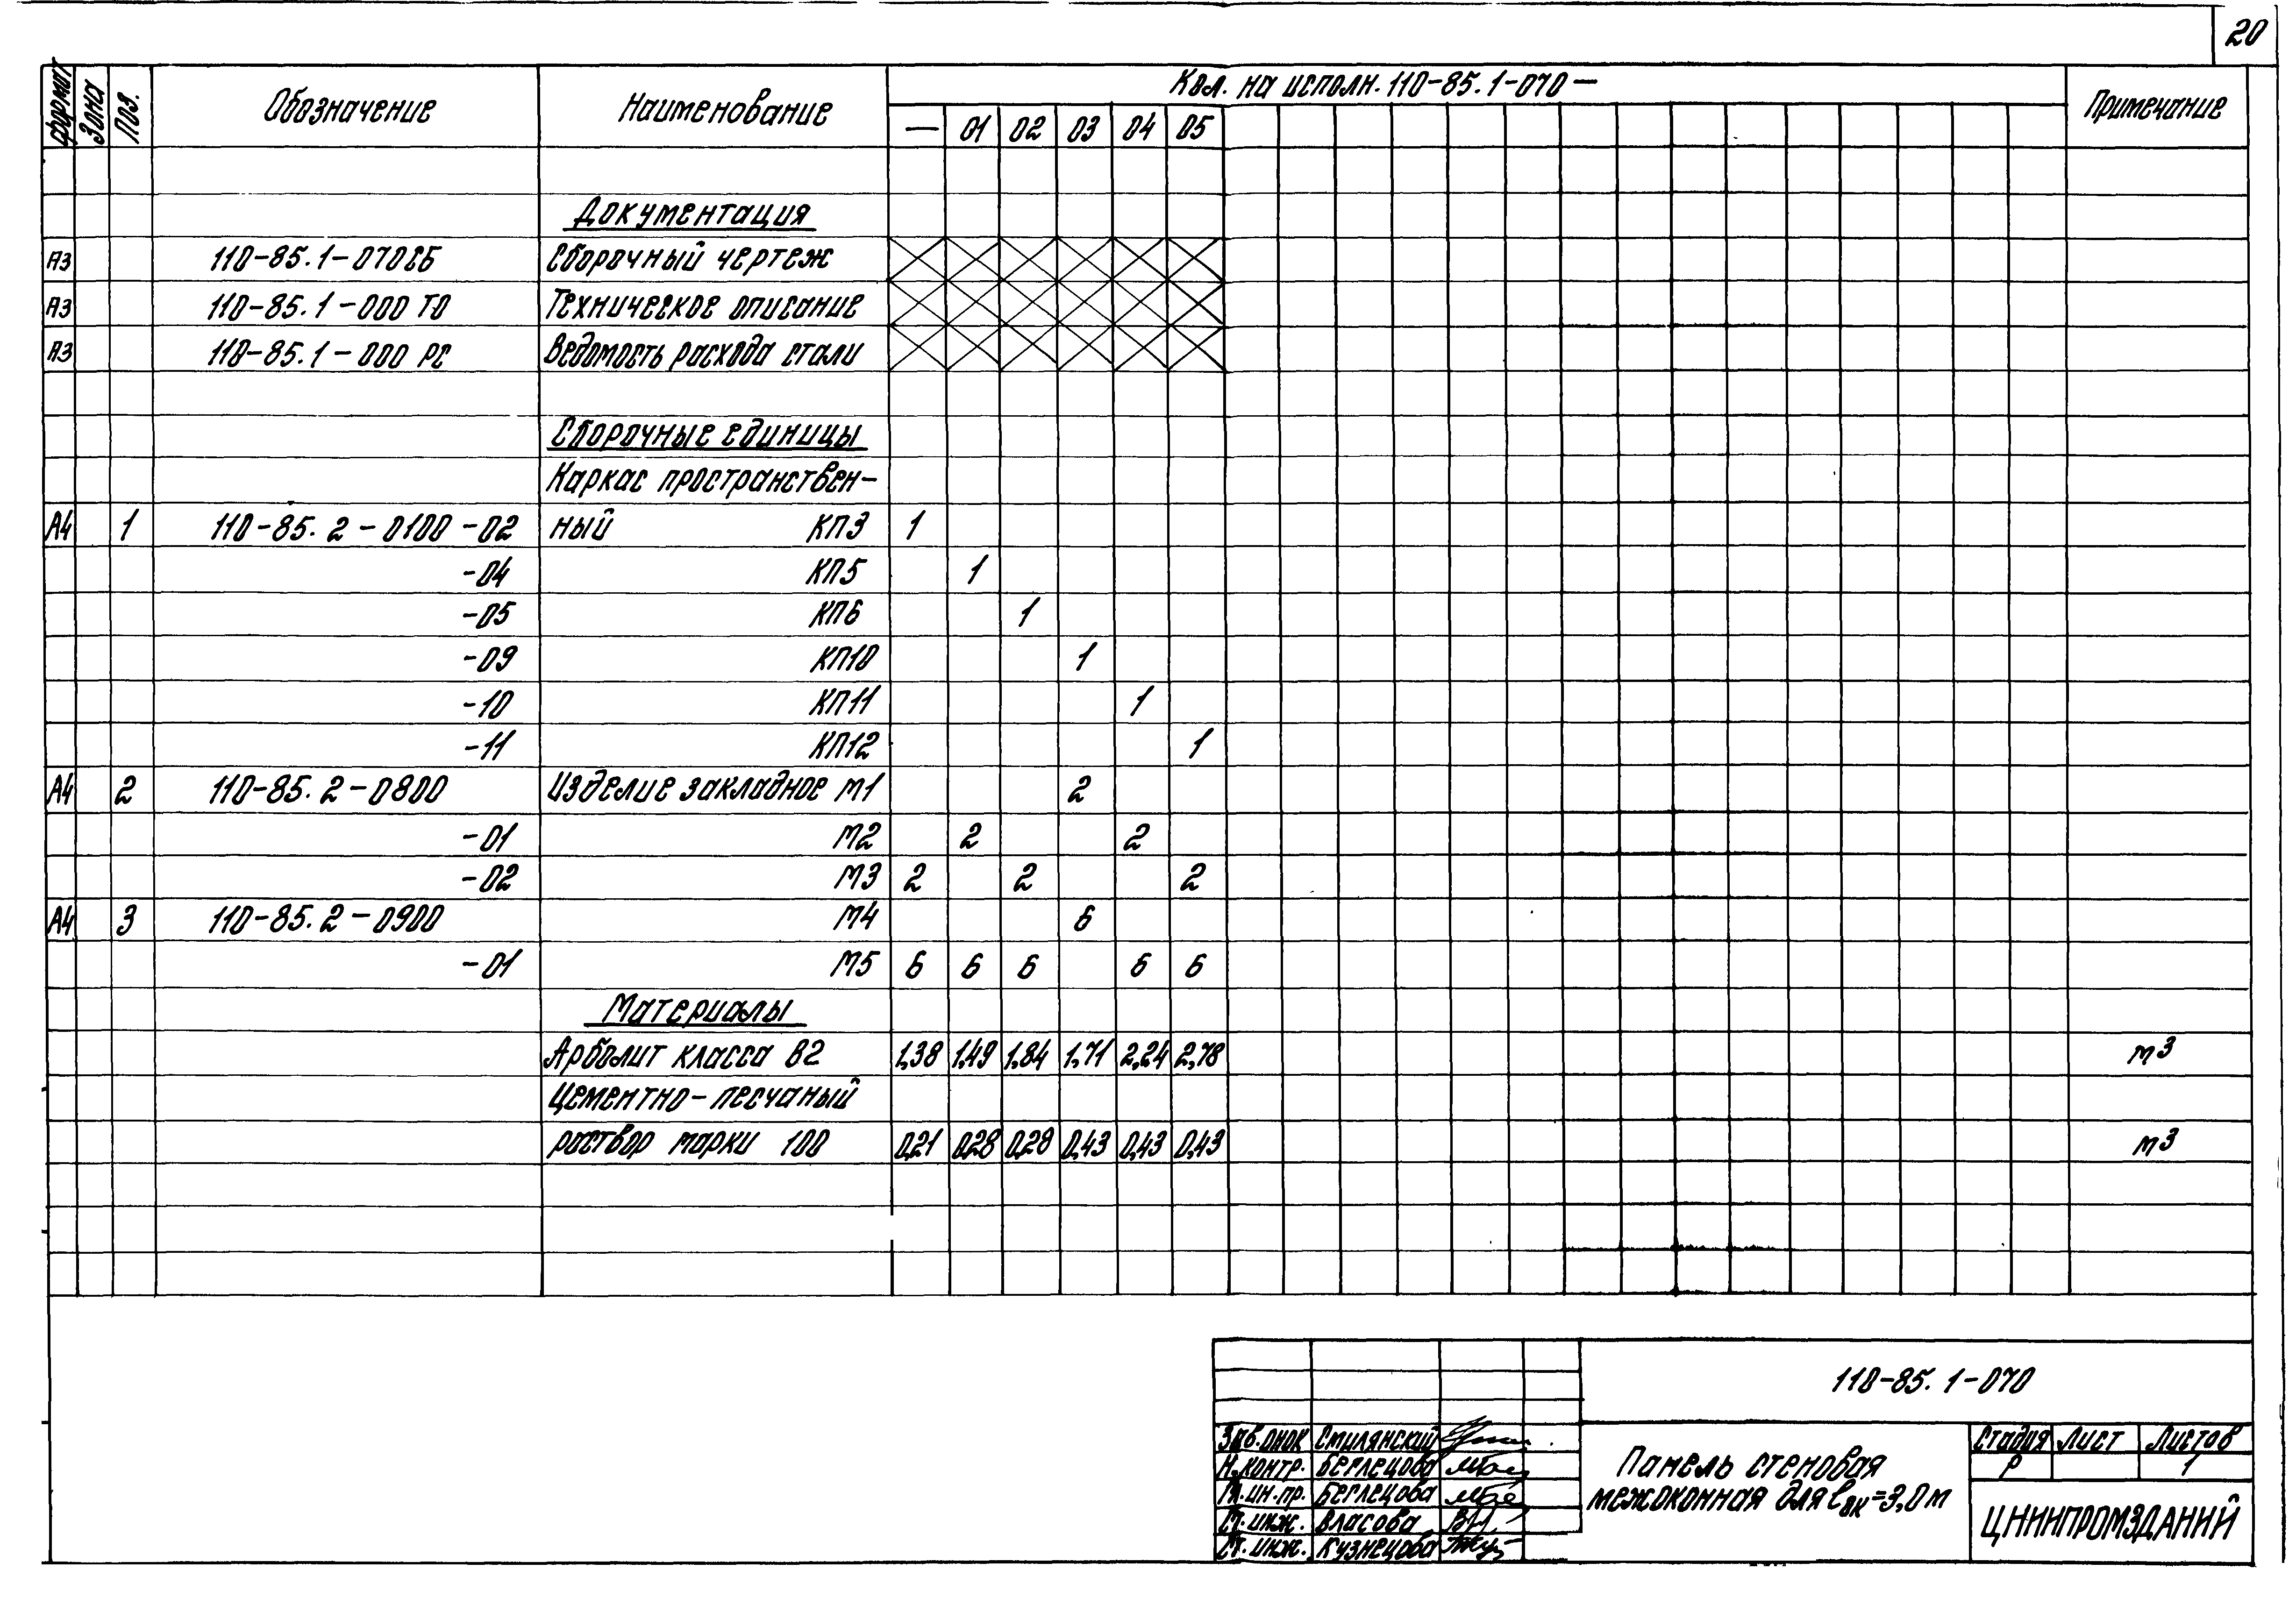 20
Формат Зона Поз. Обозначение Наименование Кол. на исполн. 110-85.1-070 — Примечание
— 01 02 03 04 05
Документация
А3 110-85.1-070СБ Сборочный чертеж
А3 110-85.1-000 ТО Техническое описание
А3 110-85.1-000 РС Ведомость расхода стали
Сборочные единицы
Каркас пространствен-
А4 1 110-85.2-0100-02 ный КП3 1
-04 КП5 1
-05 КП6 1
-09 КП10 1
-10 КП11 1
-11 КП12 1
А4 2 110-85.2-0800 Изделие закладное М1 2
-01 М2 2 2
-02 М3 2 2 2
А4 3 110-85.2-0900 М4 6
-01 М5 6 6 6 6 6
Материалы
Арболит класса В2 1,38 1,49 1,84 1,71 2,24 2,78 м3
Цементно-песчаный
раствор марки 100 0,21 0,28 0,28 0,43 0,43 0,43 м3
110-85.1-070
Зав. онок Смилянский
Н.контр. Беглецова
Гл.ин.пр. Беглецова
Ст.инж. Власова
Ст.инж. Кузнецова
Панель стеновая
межоконная для ℓок=3,0м
Стадия Лист Листов
Р 1
ЦНИИПРОМЗДАНИЙ